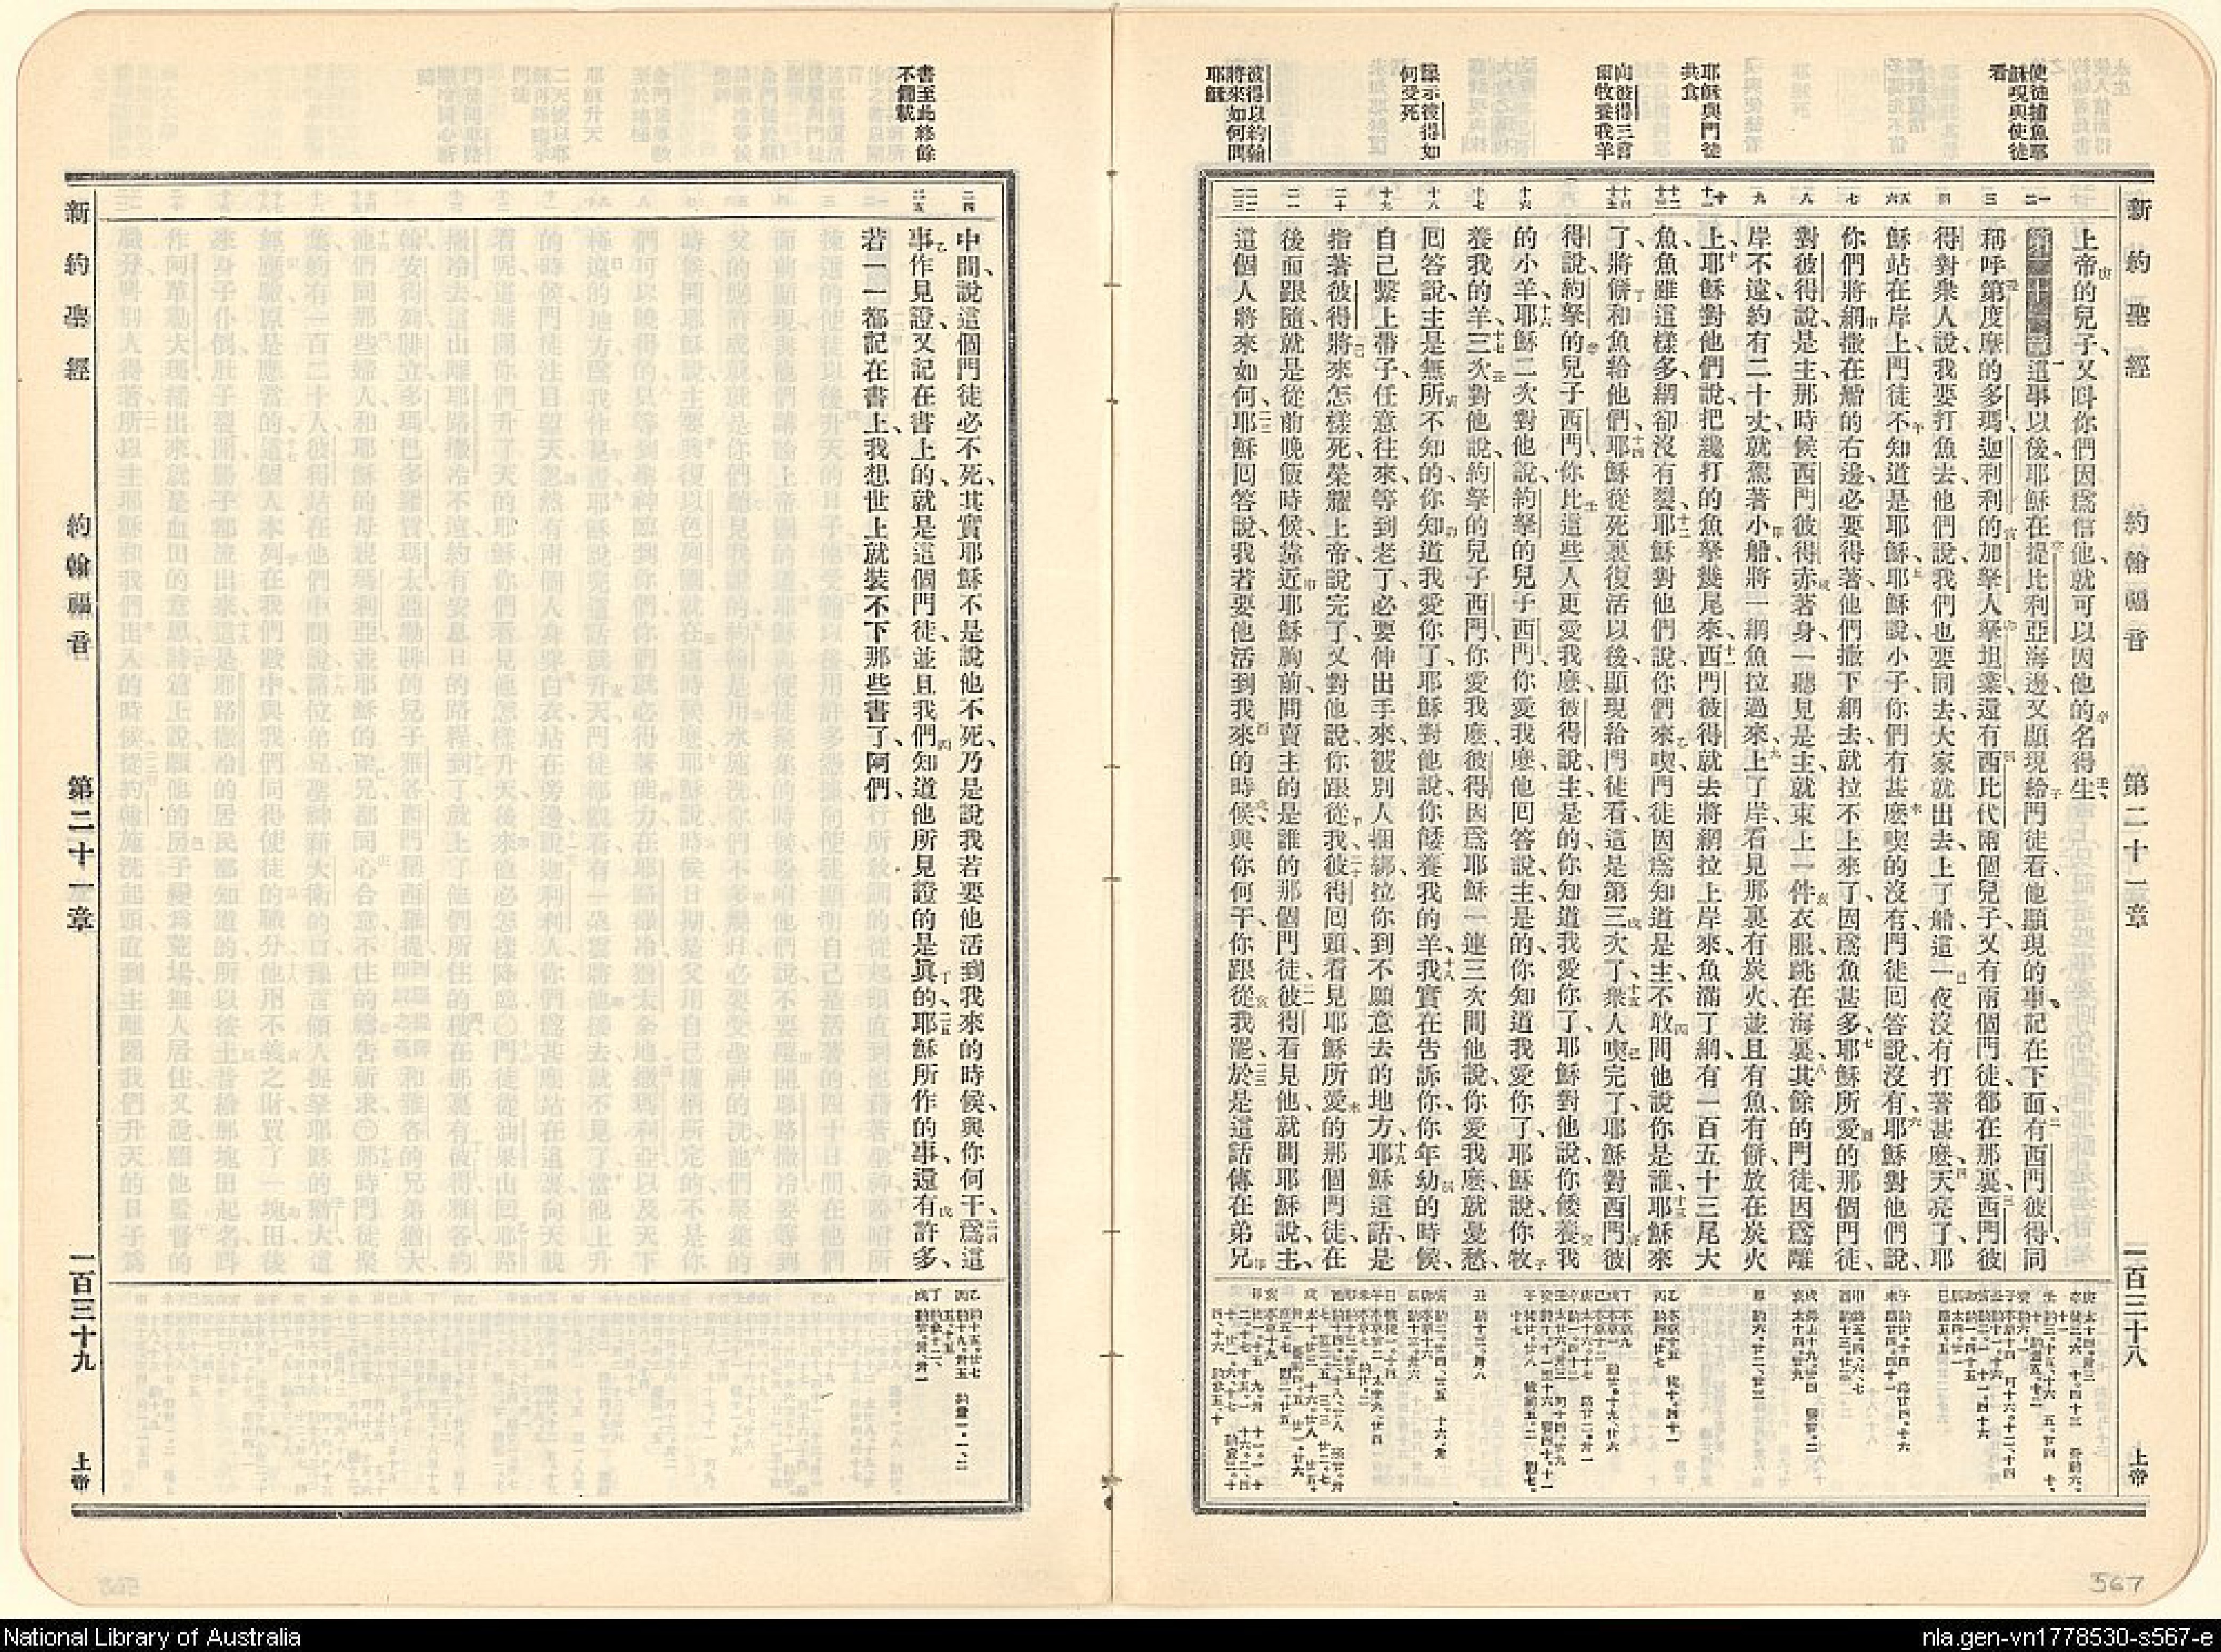 新約聖經 約翰福音 第二十一章 一百三十八 上帝
使徒捕魚耶
穌現與使徒
看
耶穌與門徒
共食
向彼得三言
爾牧養我羊
預示彼得如
何受死
彼得以約翰
將來如何問
耶穌
上帝的兒子、又呌你們因爲信他、就可以因他的名得生、
第二十一章 一這事以後、耶穌在提比利亞海邊、又顯現給門徒看、他顯現的事、記在下面、二有西門彼得、同
稱呼第度摩的多瑪、迦利利的加拏人拏坦業、還有西比代兩個兒子、又有兩個門徒、都在那裏、三西門彼
得對衆人說、我要打魚去、他們說、我們也要同去、大家就出去、上了船、這一夜沒有打著甚麼、四天亮了、耶
穌站在岸上、門徒不知道是耶穌、五耶穌說、小子、你們有甚麼喫的沒有、門徒回答說、沒有、六耶穌對他們說、
你們將網撒在船的右邊、必要得著、他們撒下網去、就拉不上來了、因爲魚甚多、七耶穌所愛的那個門徒、
對彼得說、是主、那時候西門彼得赤著身、一聽見是主、就束上一件衣服、跳在海裏、八其餘的門徒、因爲離
岸不遠、約有二十丈、就駕著小船、將一網魚拉過來、九上了岸、看見那裏有炭火、並且有魚有餅、放在炭火
上、十耶穌對他們說、把纔打的魚拏幾尾來、十一西門彼得就去將網拉上岸來、魚滿了網、有一百五十三尾大
魚、魚雖這樣多、網卻沒有裂、十二耶穌對他們說、你們來喫、門徒因爲知道是主、不敢問他說、你是誰、十三耶穌來
了、將餅和魚給他們、十四耶穌從死裏復活以後、顯現給門徒看、這是第三次了、十五衆人喫完了、耶穌對西門彼
得說、約拏的兒子西門、你比這些人更愛我麼、彼得說、主是的、你知道我愛你了、耶穌對他說、你餧養我
的小羊、十六耶穌二次對他說、約拏的兒子西門、你愛我麼、他回答說、主是的、你知道我愛你了、耶穌說、你牧
養我的羊、十七三次對他說、約拏的兒子西門、你愛我麼、彼得因爲耶穌一連三次問他說、你愛我麼、就憂愁、
回答說、主是無所不知的、你知道我愛你了、耶穌對他說、你餧養我的羊、十八我實在告訴你、你年幼的時候、
自己繫上帶子、任意往來、等到老了、必要伸出手來、被別人捆綁、拉你到不願意去的地方、十九耶穌這話、是
指著彼得將來怎樣死、榮耀上帝、說完了、又對他說、你跟從我、二十彼得回頭、看見耶穌所愛的那個門徒、在
後面跟隨、就是從前晚飯時候、靠近耶穌胸前、問賣主的是誰的那個門徒、二一彼得看見他、就問耶穌說、主、
這個人將來如何、二二耶穌回答說、我若要他活到我來的時候、與你何干、你跟從我罷、二三於是這話傳在弟兄
567
新約聖經 約翰福音 第二十一章 一百三十九 上帝
書至此終餘
不備載
中間、說這個門徒必不死、其實耶穌不是說他不死、乃是說我若要他活到我來的時候、與你何干、二四爲這
事作見證、又記在書上的、就是這個門徒、並且我們知道他所見證的是眞的、二五耶穌所作的事、還有許多、
若一一都記在書上、我想世上就裝不下那些書了、阿們、
National Library of Australia
nla.gen-vn1778530-s567-e